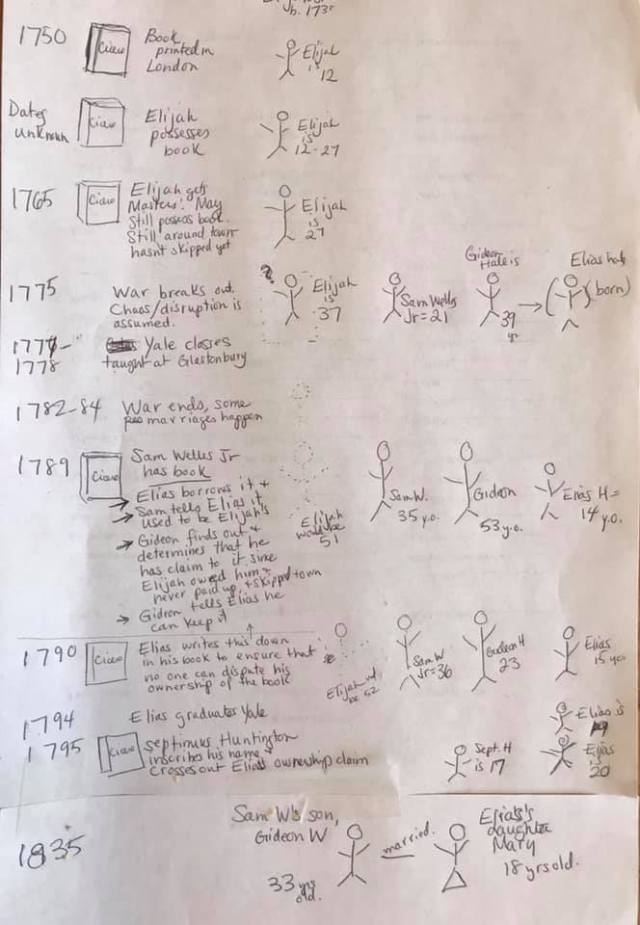 b. 173
1750
Cicero
Book
printed in
London
Elijah
is
12
Dates
unknown
Cicero
Elijah
possesses
book
Elijah
is
12-27
1765
Cicero
Elijah gets
Masters. May
still possess book.
Still around town
hasnt skipped yet
Elijah
is
27
1775
War breaks out.
Chaos/disruption is
assumed.
?
Elijah
is
37
Sam Welles
Jr = 21
Gideon
Hale is
39
Elias hale
(born)
1777-
1778
Yale closes
taught at Glastonbury
1782-84
War ends, some
marriages happen
1789
Cicero
Sam Welles Jr
has book
→ Elias borrows it +
→ Sam tells Elias it
used to be Elijah's
→ Gideon finds out +
determines that he
has claim to it since
Elijah owed him +
never paid up, + skipped town
→ Gideon tells Elias he
can keep it
Elijah
would be
51
Sam W.
35 y.o.
Gideon
53 y.o.
Elias H =
14 y.o.
1790
Cicero
Elias writes this down
in his book to ensure that
no one can dispute his
ownership of the book
Elijah wd
be 52
Sam W
Jr = 36
Gideon H
23
Elias
15 yo
1794
Elias graduates Yale
Elias is
19
1795
Cicero
Septimus Huntington
inscribes his name &
crosses out Elias' ownership claim
Sept. H
is 17
Elias
is
20
1835
Sam W's son,
Gideon W
33 yrs
old.
married.
Elias's
daughter
Mary
18 yrs old.